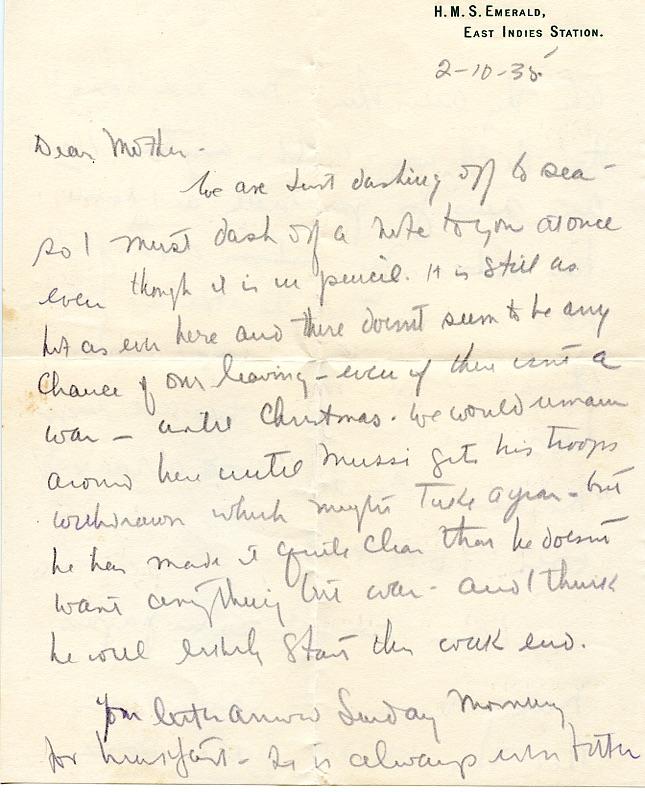 H. M. S. EMERALD,
EAST INDIES STATION.
2-10-35
Dear Mother -
We are just dashing off to sea -
so I must dash off a note to you at once
even though it is in pencil. It is still as
hot as ever here and there doesn't seem to be any
chance of our leaving - even if there isn't a
war - until Christmas. We would remain
around here until Mussi gets his troops
withdrawn which might take a year - but
he has made it quite clear that he doesn't
want anything but war - and I think
he will likely start this week end.
Your letter arrived Sunday morning
for breakfast - is always